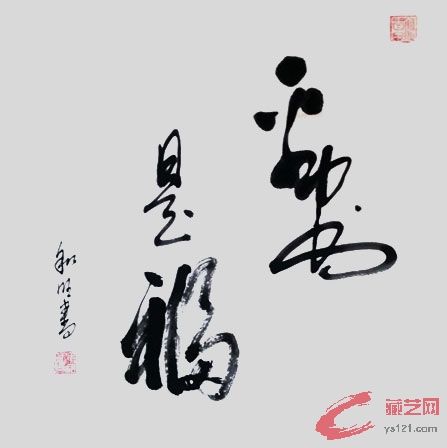 平安
是福
書
藏艺网
ys121.com